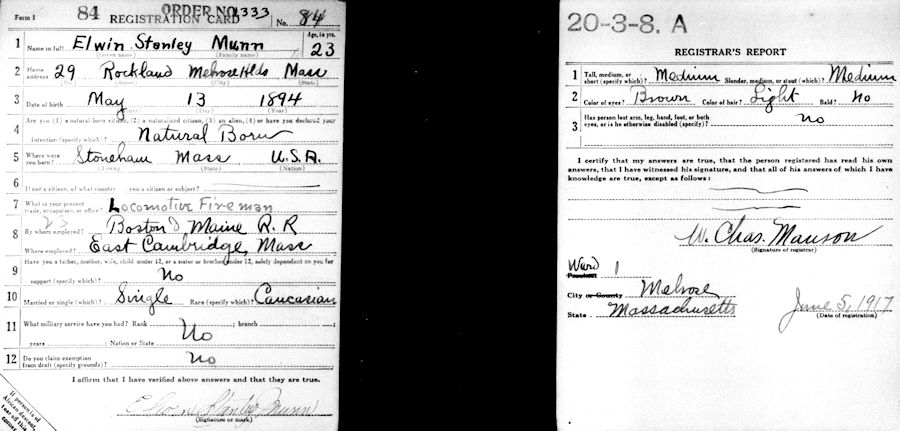 Form 1 84 ORDER NO. 1333
REGISTRATION CARD No. 84
1 Name in full Elwin Stanley Munn Age, in yrs. 23
(Given name) (Family name)
2 Home address 29 Rockland Melrose Hlds Mass
3 Date of birth May 13 1894
(Month) (Day) (Year)
4 Are you (1) a natural-born citizen, (2) a naturalized citizen, (3) an alien, (4) or have you declared your
intention (specify which)? Natural Born
5 Where were you born? Stoneham Mass U.S.A.
(Town) (State) (Nation)
6 If not a citizen, of what country are you a citizen or subject?
7 What is your present trade, occupation, or office? Locomotive Fireman
8 By whom employed? Boston & Maine R.R
Where employed? East Cambridge, Mass
9 Have you a father, mother, wife, child under 12, or a sister or brother under 12, solely dependent on you for
support (specify which)? No
10 Married or single (which)? Single Race (specify which)? Caucasian
11 What military service have you had? Rank ; branch ;
years ; Nation or State No
12 Do you claim exemption from draft (specify grounds)? No
I affirm that I have verified above answers and that they are true.
Elwin Stanley Munn
(Signature or mark)
If person is of
African descent,
tear off this
corner
20-3-8. A
REGISTRAR'S REPORT
1 Tall, medium, or short (specify which)? Medium Slender, medium, or stout (which)? Medium
2 Color of eyes? Brown Color of hair? Light Bald? No
3 Has person lost arm, leg, hand, foot, or both
eyes, or is he otherwise disabled (specify)? No
I certify that my answers are true, that the person registered has read his own
answers, that I have witnessed his signature, and that all of his answers of which I have
knowledge are true, except as follows:
W. Chas. Manson
(Signature of registrar)
Ward 1
Precinct
City or County Melrose
State Massachusetts
June 5, 1917
(Date of registration)